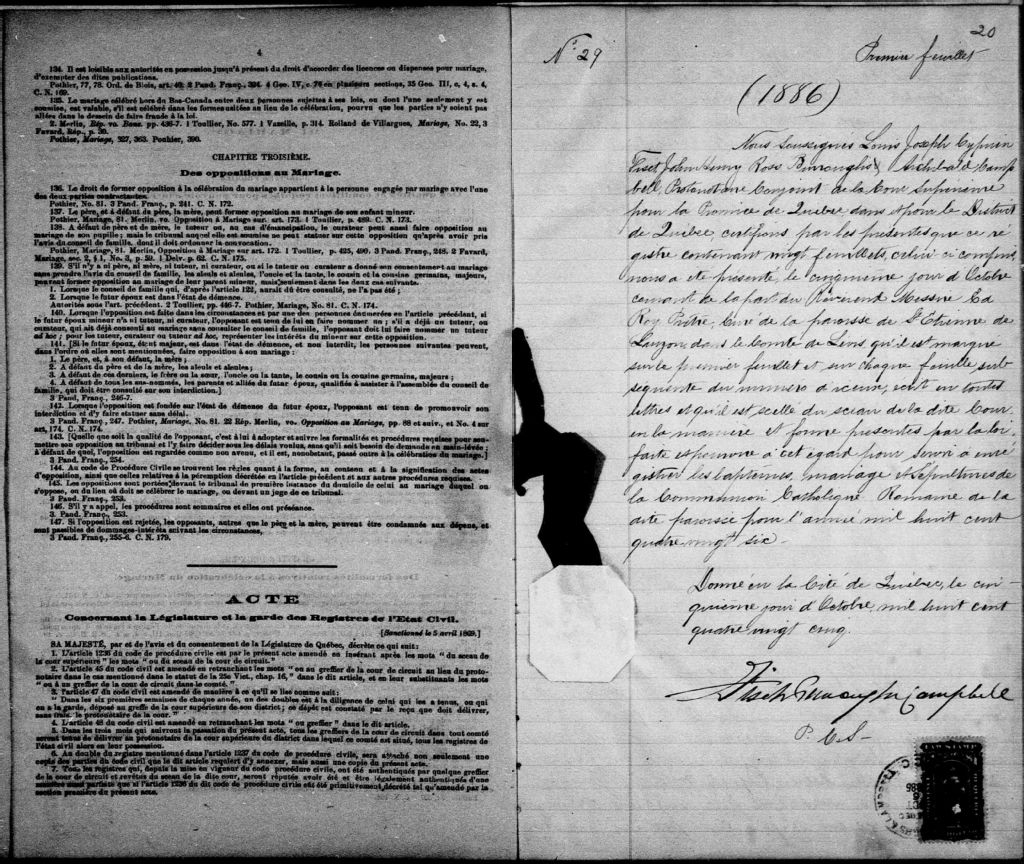 4
134. Il est loisible aux autorités en possession jusqu'à présent du droit d'accorder des licences ou dispenses pour mariage,
d'exempter des dites publications.
Pothier, 77, 78. Ord. de Blois, art. 40. 2 Pand. Franç., 334. 4 Geo. IV, c. 76 en plusieurs sections, 35 Geo. III, c. 4, s. 4,
C. N. 169.
135. Le mariage célébré hors du Bas-Canada entre deux personnes sujettes à ses lois, ou dont l'une seulement y est
soumise, est valable, s'il est célébré dans les formes usitées au lieu de la célébration, pourvu que les parties n'y soient pas
allées dans le dessein de faire fraude à la loi.
2. Merlin, Rép. vo. Bans. pp. 436-7. 1 Toullier, No. 577. 1 Vazille, p. 314. Rolland de Villargues, Mariage, No. 22, 3
Favard, Rép., p. 36.
Pothier, Mariage, 327, 363. Pothier, 390.
CHAPITRE TROISIÈME.
Des oppositions au Mariage.
136. Le droit de former opposition à la célébration du mariage appartient à la personne engagée par mariage avec l'une
des deux parties contractantes.
Pothier, No. 81. 3 Pand. Franç., p. 241. C. N. 172.
137. Le père, et à défaut du père, la mère, peut former opposition au mariage de son enfant mineur.
Pothier, Mariage, 81. Merlin, vo. Opposition à Mariage sur. art. 173. 1 Toullier, p. 489. C. N. 173.
138. A défaut de père et de mère, le tuteur ou, au cas d'émancipation, le curateur peut aussi faire opposition au
mariage de son pupille; mais le tribunal auquel elle est soumise ne peut statuer sur cette opposition qu'après avoir pris
l'avis du conseil de famille, dont il doit ordonner la convocation.
Pothier, Mariage, 81. Merlin, Opposition à Mariage sur art. 172. 1 Toullier, p. 425, 490. 3 Pand. Franç., 248. 2 Favard,
Mariage, sec. 2, § 1, No. 3, p. 59. 1 Delv. p. 62. C. N. 175.
139. S'il n'y a ni père, ni mère, ni tuteur, ni curateur, ou si le tuteur ou curateur a donné son consentement au mariage
sans prendre l'avis du conseil de famille, les aïeuls et aïeules, l'oncle et la tante, le cousin et la cousine germains, majeurs,
peuvent former opposition au mariage de leur parent mineur, mais seulement dans les deux cas suivants.
1. Lorsque le conseil de famille qui, d'après l'article 122, aurait dû être consulté, ne l'a pas été;
2. Lorsque le futur époux est dans l'état de démence.
Autorités sous l'art. précédent. 2 Toullier, pp. 446-7. Pothier, Mariage, No. 81. C. N. 174.
140. Lorsque l'opposition est faite dans les circonstances et par une des personnes énumérées en l'article précédent, si
le futur époux mineur n'a ni tuteur, ni curateur, l'opposant est tenu de lui en faire nommer un; s'il a déjà un tuteur ou
curateur, qui ait déjà consenti au mariage sans consulter le conseil de famille, l'opposant doit lui faire nommer un tuteur
ad hoc; pour les tuteur, curateur ou tuteur ad hoc, représenter les intérêts du mineur sur cette opposition.
141. [Si le futur époux, étant majeur, est dans l'état de démence, et non interdit, les personnes suivantes peuvent,
dans l'ordre où elles sont mentionnées, faire opposition à son mariage:
1. Le père, et, à son défaut, la mère;
2. A défaut du père et de la mère, les aïeuls et aïeules;
3. A défaut de ces derniers, le frère ou la sœur, l'oncle ou la tante, le cousin ou la cousine germains, majeurs;
4. A défaut de tous les sus-nommés, les parents et alliés du futur époux, qualifiés à assister à l'assemblée du conseil de
famille, qui doit être consulté sur son interdiction.]
3 Pand. Franç., 246-7.
142. Lorsque l'opposition est fondée sur l'état de démence du futur époux, l'opposant est tenu de promouvoir son
interdiction et d'y faire statuer sans délai.
3 Pand. Franç., 247. Pothier, Mariage, No. 81. 22 Rép. Merlin, vo. Opposition au Mariage, pp. 88 et suiv., et No. 4 sur
art. 174. C. N. 174.
143. [Quelle que soit la qualité de l'opposant, c'est à lui à adopter et suivre les formalités et procédures requises pour sou-
mettre son opposition au tribunal et l'y faire décider sous les délais voulus, sans qu'il soit besoin de demande en main-levée;
à défaut de quoi, l'opposition est regardée comme non avenu, et il est, nonobstant, passé outre à la célébration du mariage.]
3 Pand. Franç., 254.
144. Au code de Procédure Civile se trouvent les règles quant à la forme, au contenu et à la signification des actes
d'opposition, ainsi que celles relatives à la péremption décrétée en l'article précédent et aux autres procédures requises.
145. Les oppositions sont portées devant le tribunal de première instance du domicile de celui au mariage duquel on
s'oppose, ou du lieu où doit se célébrer le mariage, ou devant un juge de ce tribunal.
3 Pand. Franç., 253.
146. S'il y a appel, les procédures sont sommaires et elles ont préséance.
3. Pand. Franç., 253.
147. Si l'opposition est rejetée, les opposants, autres que le père et la mère, peuvent être condamnés aux dépens, et
sont passibles de dommages-intérêts suivant les circonstances.
3 Pand. Franç., 255-6. C. N. 179.
ACTE
Concernant la Législature et la garde des Registres de l'Etat Civil.
[Sanctionné le 5 avril 1869.]
SA MAJESTÉ, par et de l'avis et du consentement de la Législature de Québec, décrète ce qui suit:
1. L'article 1236 du code de procédure civile est par le présent acte amendé en insérant après les mots "du sceau de
la cour supérieure" les mots "ou du sceau de la cour de circuit."
2. L'article 45 du code civil est amendé en retranchant les mots "ou au greffier de la cour de circuit au lieu du proto-
notaire dans le cas mentionné dans le statut de la 25e Vict., chap. 16," dans le dit article, et en leur substituant les mots
"ou à un greffier de la cour de circuit dans le comté."
3. l'article 47 du code civil est amendé de manière à ce qu'il se lise comme suit:
"Dans les six premières semaines de chaque année, un des doubles est à la diligence de celui qui les a tenus, ou qui
en a la garde, déposé au greffe de la cour supérieure de son district; ce dépôt est constaté par le reçu que doit délivrer,
sans frais, le protonotaire de la cour."
4. L'article 48 du code civil est amendé en retranchant les mots "ou greffier" dans le dit article.
5. Dans les trois mois qui suivront la passation du présent acte, tous les greffiers de la cour de circuit dans tout comté
seront tenus de délivrer au protonotaire de la cour supérieure du district dans lequel ce comté est situé, tous les registres de
l'état civil alors en leur possession.
6. Au double du registre mentionné dans l'article 1237 du code de procédure civile, sera attaché non seulement une
copie des parties du code civil que le dit article requiert d'y annexer, mais aussi une copie du présent acte.
7. Tous les registres qui, depuis la mise en vigueur du code de procédure civile, ont été authentiqués par quelque greffier
de la cour de circuit et revêtus du sceau de la dite cour, seront réputés avoir été et être légalement authentiqués d'une
manière aussi parfaite que si l'article 1236 du dit code de procédure civile eût été primitivement décrété tel qu'amendé par la
section première du présent acte.
No 29
20
Premier feuillet
(1886)
Nous Soussignés Louis Joseph Cyprien
Fiset, John Henry Ross Burroughs & Archibald Camp
bell, Protonotaire Conjoint de la Cour Supérieure
pour la Province de Québec dans et pour le District
de Québec, certifions par les présentes que ce ré
gistre contenant vingt feuillets, celui ci compris,
nous a été présenté, le cinquième jour d'Octobre
courant de la part du Révérend Messire Ed
Roy Prêtre, Curé de la paroisse de St Etienne de
Lauzon, dans le Comté de Lévis, qu'il est marqué
sur le premier feuillet et sur chaque feuille sub-
séquente du numéro d'icelui, écrit en toutes
lettres et qu'il est scellé du sceau de la dite Cour
en la manière et forme prescrites par la loi
faite et pourvue à cet égard pour servir à enré
gistrer les baptêmes, mariage et Sépultures de
la Communion Catholique Romaine de la
dite paroisse pour l'année mil huit cent
quatre vingt six.
Donné en la Cité de Québec, le cin-
quième jour d'Octobre, mil huit cent
quatre vingt cinq.
Fiset Burroughs Campbell
P. C. S.
LAW STAMP